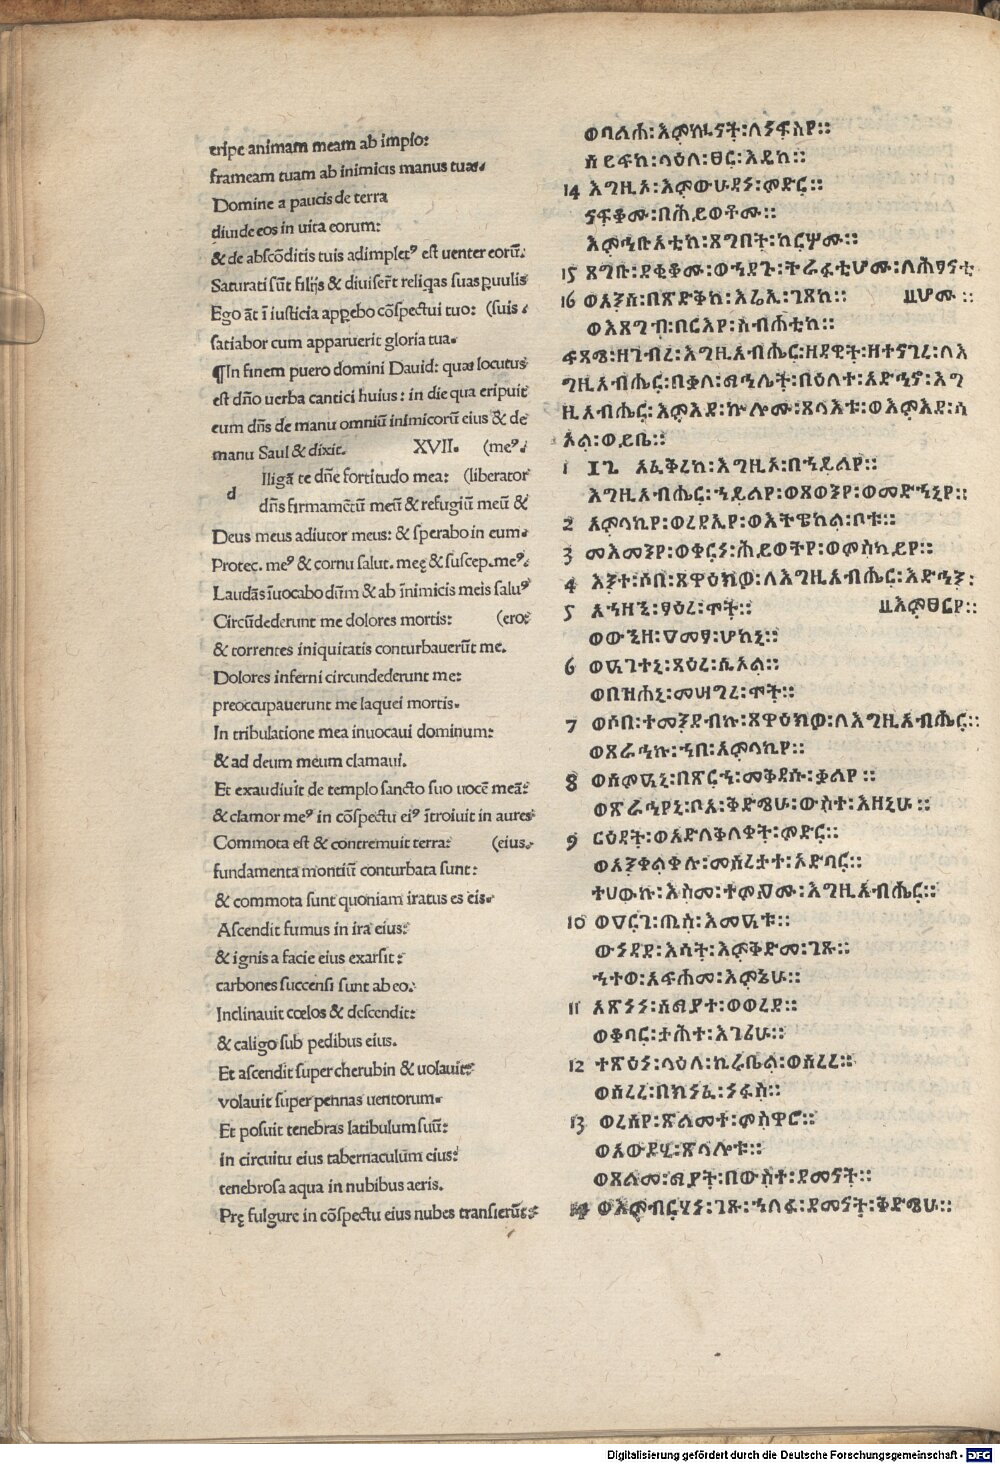 eripe animam meam ab impio:
frameam tuam ab inimicis manus tuae.
Domine a paucis de terra
diuide eos in uita eorum:
& de abscōditis tuis adimplet⁹ est uenter eorū.
Saturati sūt filijs & diuiserūt reliqas suas puulis
Ego āt ī iusticia appebo cōspectui tuo: (suis.
satiabor cum apparuerit gloria tua.
¶In finem puero domini Dauid: quae locutus
est dño uerba cantici huius: in die qua eripuit
eum dñs de manu omniū inimicorū eius & de
manu Saul & dixit. XVII. (me⁹.
d Iligā te dñe fortitudo mea: (liberator
dñs firmamētū meū & refugiū meū &
Deus meus adiutor meus: & sperabo in eum.
Protec. me⁹ & cornu salut. meę & suscep. me⁹.
Laudās īuocabo dūm & ab īnimicis meis salu⁹
Circūdederunt me dolores mortis: (ero:
& torrentes iniquitatis conturbauerūt me.
Dolores inferni circundederunt me:
preoccupauerunt me laquei mortis.
In tribulatione mea inuocaui dominum:
& ad deum meum clamaui.
Et exaudiuit de templo sancto suo uocē meā:
& clamor me⁹ in cōspectu ei⁹ ītroiuit in aures
Commota est & contremuit terra: (eius.
fundamenta montiū conturbata sunt:
& commota sunt quoniam iratus es eis.
Ascendit fumus in ira eius:
& ignis a facie eius exarsit:
carbones succensi sunt ab eo.
Inclinauit coelos & descendit:
& caligo sub pedibus eius.
Et ascendit super cherubin & uolauit:
volauit super pennas uentorum.
Et posuit tenebras latibulum suū:
in circuitu eius tabernaculūm eius:
tenebrosa aqua in nubibus aeris.
Prę fulgure in cōspectu eius nubes transierūt:
ወባልሐ፡እምኵናት፡ለነፍስየ።
ሰይፍከ፡ላዕለ፡ፀር፡እዴከ።
14 እግዚኦ፡እምውሁዳን፡ምድር።
ንፍቆሙ፡በሕይወቶሙ።
እምኅቡአቲከ፡ጸግበት፡ከርሦሙ።
15 ጸግቡ፡ደቂቆሙ፡ወኀደጉ፡ትራፋቲሆሙ፡ለሕፃናቲ
16 ወአንሰ፡በጽድቅከ፡እሬኢ፡ገጸከ። ሆሙ።
ወእጸግብ፡በርእየ፡ስብሐቲከ።
ፍጻሜ፡ዘገብረ፡እግዚአብሔር፡ዘዳዊት፡ዘተናገረ፡ለእ
ግዚአብሔር፡በቃለ፡ማኅሌት፡በዕለተ፡አድኅኖ፡እግ
ዚአብሔር፡እምእደ፡ኵሎሙ፡ጸላእቱ፡ወእምእደ፡ሳ
ኦል፡ወይቤ።
1 ፲፯ አፈቅረከ፡እግዚኦ፡በኀይልየ።
እግዚአብሔር፡ኀይልየ፡ወጸወንየ፡ወመድኀኒየ።
2 አምላኪየ፡ወረዳኢየ፡ወእትዌከል፡ቦቱ።
3 መእመንየ፡ወቀርነ፡ሕይወትየ፡ወምስካይየ።
4 እንተ፡ሶበ፡ጸዋዕክዎ፡ለእግዚአብሔር፡እድኅን፡
5 አኀዘኒ፡ፃዕረ፡ሞት። እምፀርየ።
ወውኂዘ፡ዐመፃ፡ሆከኒ።
6 ወዐገተኒ፡ጻዕረ፡ሲኦል።
ወበጽሐኒ፡መሥገረ፡ሞት።
7 ወሶበ፡ተመንደብኩ፡ጸዋዕክዎ፡ለእግዚአብሔር።
ወጸራኅኩ፡ኀበ፡አምላኪየ።
8 ወሰምዐኒ፡በጽርሐ፡መቅደሱ፡ቃልየ።
ወጽራኅየኒ፡ቦአ፡ቅድሜሁ፡ውስተ፡እዘኒሁ።
9 ርዕደት፡ወአድለቅለቀት፡ምድር።
ወአንቀልቀሉ፡መሰረታተ፡አድባር።
ተሀውኩ፡እስመ፡ተምዖሙ፡እግዚአብሔር።
10 ወዐርገ፡ጢስ፡እመዐቱ።
ውኅደደ፡እሳት፡እምቅድመ፡ገጹ።
ኀተወ፡አፍሐመ፡እምኔሁ።
11 አጽነነ፡ሰማያተ፡ወወረደ።
ወቆባር፡ታሕተ፡እገሪሁ።
12 ተጽዕነ፡ላዕለ፡ኪሩቤል፡ወሰረረ።
ወሰረረ፡በክነፈ፡ነፋስ።
13 ወረሰየ፡ጽልመተ፡ምስዋሮ።
ወአውዶሂ፡ጽላሎቱ።
ወጸልመ፡ማያት፡በውስተ፡ደመናት።
14 ወእምብርሃነ፡ገጹ፡ኀለፈ፡ደመናት፡ቅድሜሁ።
Digitalisierung gefördert durch die Deutsche Forschungsgemeinschaft - DFG